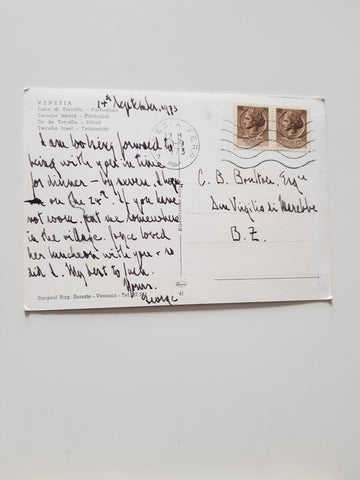 14th September, 1973
VENEZIA
Isola di Torcello - Particolare
Torcello Island - Particular
Ile de Torcello - Détail
Torcello Insel - Teilansicht
VENEZIA FERR
I am looking forward to
being with you in time
for dinner - by seven I hope
- on the 24th. If you have
not room, put me somewhere
in the village. Joyce loved
her luncheon with you - so
did I. My best to Jack.
Yours,
George
C. B. Boulton, Esq.
San Vigilio di Marebbe
B.Z.
Dorgeni Rag. Renato - Venezia - Tel.
41